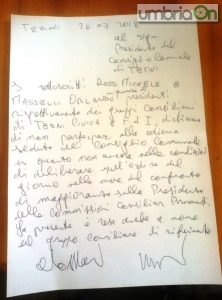 umbriaOn
TERNI 26 07 2018
al sig.
Presidente del
Consiglio Comunale
di TERNI
I sottoscritti ROSSI MICHELE E
MASSELLI ORLANDO, presidenti
rispettivamente dei gruppi consiliari
di TERNI CIVICA E F d I, dichiarano
di non partecipare alla odierna
seduta del Consiglio Comunale
in quanto non essere nelle condizioni
di deliberare sull'ordine del
giorno nelle more del confronto
di maggioranza sulle Presidenze
delle commissioni consiliari Permanenti.
La presente è resa anche a nome
del gruppo consiliare di riferimento